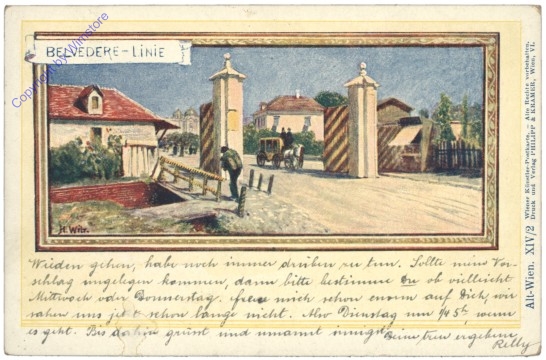 BELVEDERE-LINIE
Copyright by Winstore
H. Wilt.
Wieden gehen, habe noch immer drüben zu tun. Sollte mein Vor-
schlag ungelegen kommen, dann bitte bestimme Du ob vielleicht
Mittwoch oder Donnerstag. freue mich schon enorm auf Dich, wir
sahen uns ja schon lange nicht. Also Dienstag um 1/4 5h, wenn
es geht. Bis dahin grüsst und umarmt innigst
Deine treu ergebene
Relly
Alt-Wien. XIV/2
Wiener Künstler-Postkarte. – Alle Rechte vorbehalten.
Druck und Verlag PHILIPP & KRAMER, Wien, VI.